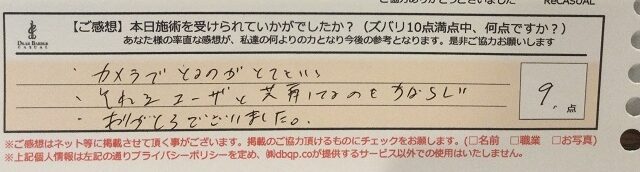 ReCASUAL
DEAR BARBER
CASUAL
【ご感想】本日施術を受けられていかがでしたか？（ズバリ10点満点中、何点ですか？）
あなた様の率直な感想が、私達の何よりの力となり今後の参考となります。是非ご協力お願いします
・カメラでとるのがとてもいい
・それをユーザと共有してるのもすばらしい
・ありがとうございました。
9 点
※ご感想はネット等に掲載させて頂く事がございます。掲載のご協力頂けるものにチェックをお願します。(□名前 □職業 □お写真)
※上記個人情報は左記の通りプライバシーポリシーを定め、㈱idbqp.coが提供するサービス以外での使用はいたしません。